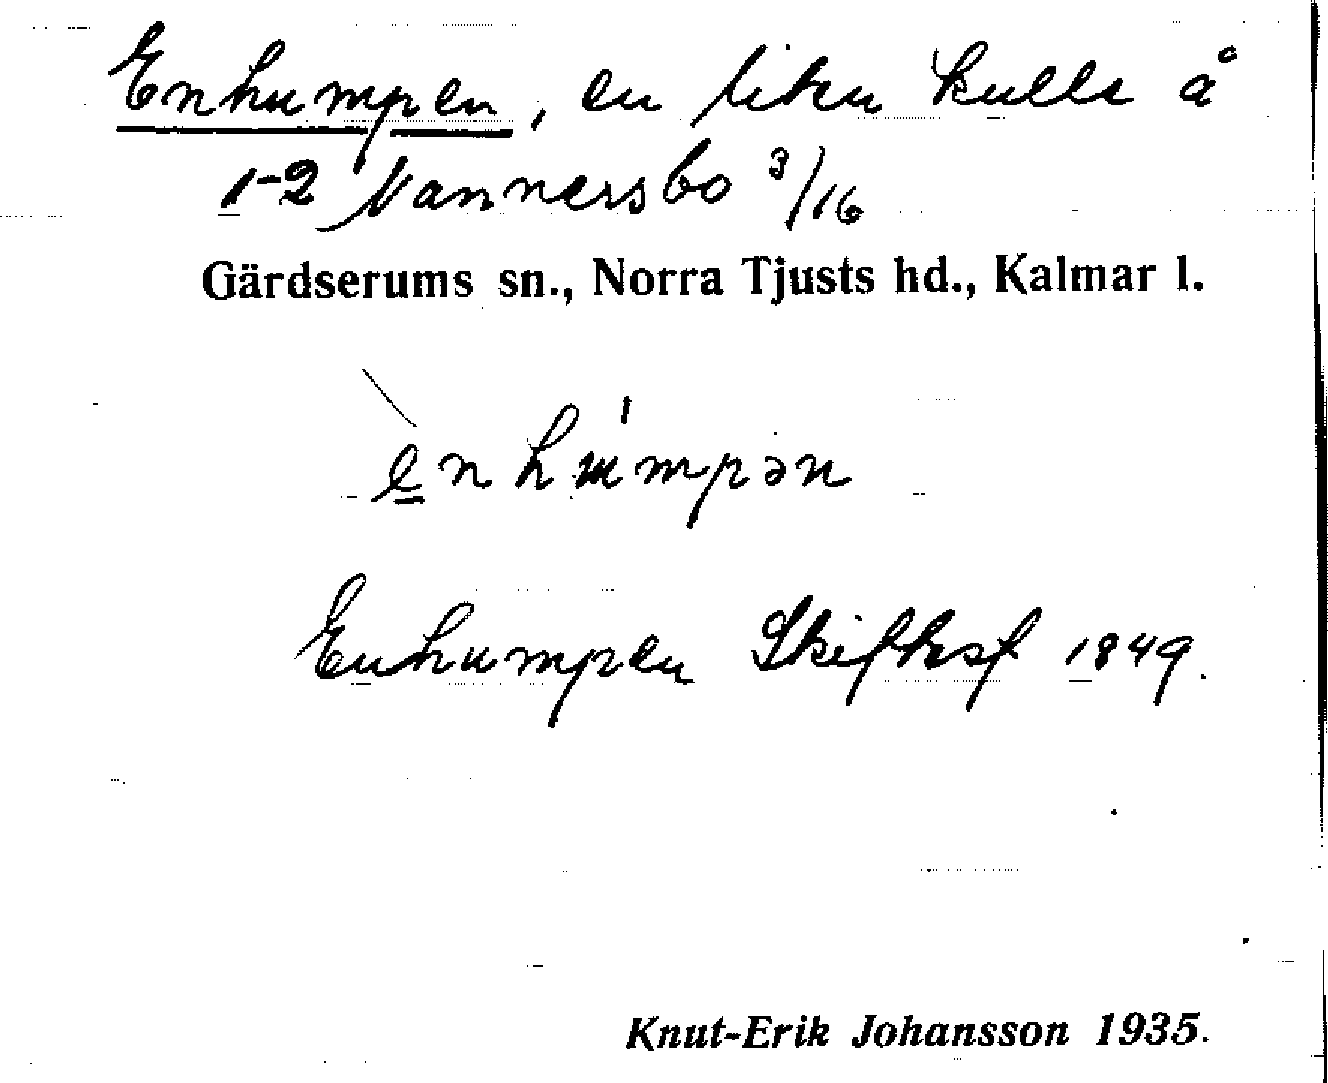 Enhumpen, en liten kulle å
1-2 Vannersbo 3/16
Gärdserums sn., Norra Tjusts hd., Kalmar l.
ènhúmpən
Enhumpen Skifteskf 1849.
Knut-Erik Johansson 1935.